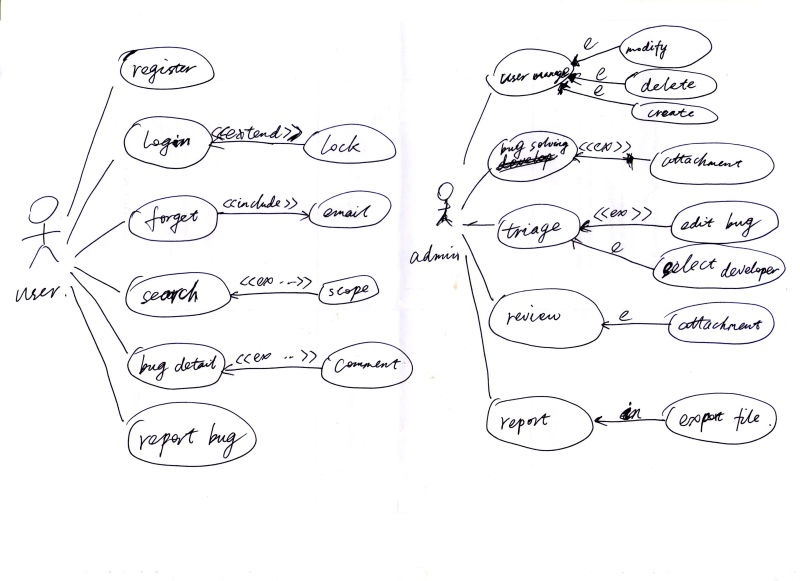 register
login
<<extend>>
lock
forget
<<include>>
email
user.
search
<<ex ...>>
scope
bug detail
<<ex ...>>
comment
report bug
user manage
e
modify
e
delete
e
create
bug solving
develop
<<ex>>
attachment
admin
triage
<<ex>>
edit bug
e
select developer
review
e
attachment
report
in
export file.